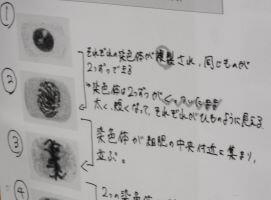 ①
それぞれの染色体が複製され、同じものが
2つずつできる
②
染色体は2つずつがくっついたまま
太く、短くなって、それぞれがひものように見える
③
染色体が細胞の中央付近に集まり、
並ぶ。
④
2つの染色体